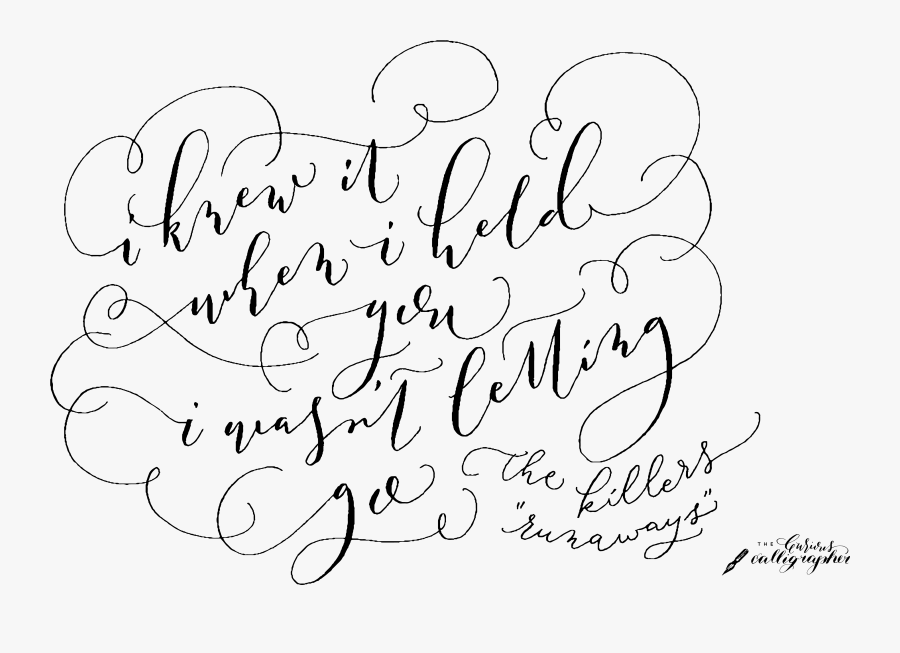 i knew it
when i held
you
i wasn't letting
go
the killers
"runaways"
THE Curious
calligrapher